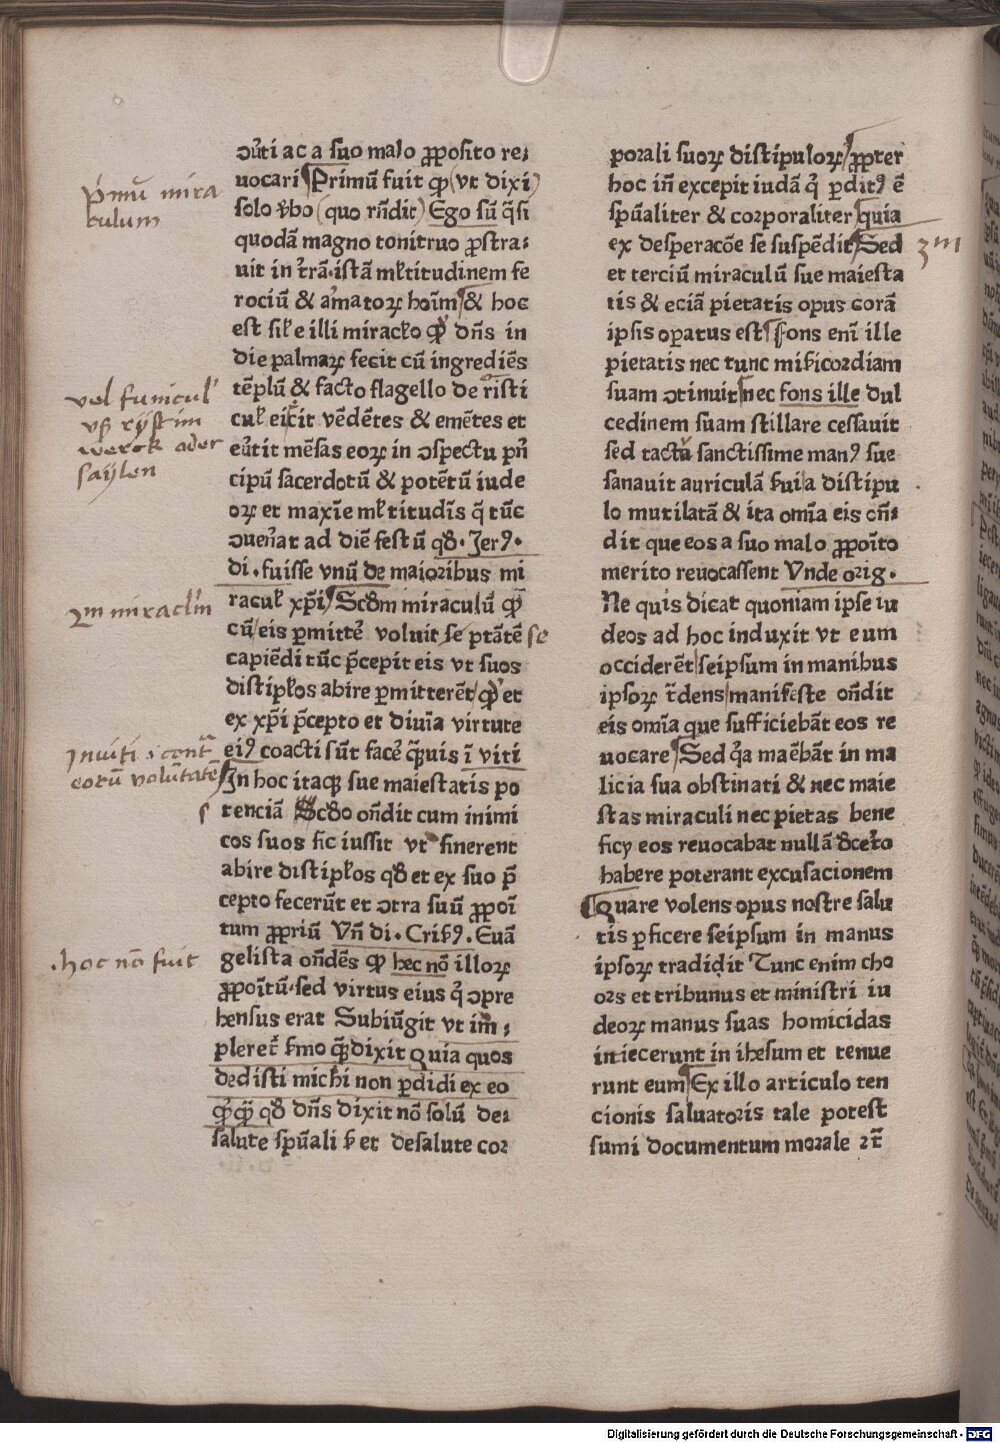 ꝯu͛ti ac a suo malo ꝓposito re⸗
uocari Primū fuit ꝙ (vt dixi)
solo v̾bo (quo rn̄dit) Ego sū q̄si
quodā magno tonitruo ꝓstra⸗
uit in t͛rā·istā mĺtitudinem fe
rociū & armatoꝝ hoīm & hoc
est siĺe illi miracĺo ꝙ dn̄s in
die palmaꝝ fecit cū ingrediēs
tēplū & facto flagello de risti
cuĺ eicit vēdētes & emētes et
eu͛tit mēsas eoꝝ in ꝯspectu pn̄
cipū sacerdotū & potētū iude
oꝝ et maxīe mĺtitudīs q̄ tūc
ꝯuen͛at ad diē festū qď· Jerꝰ·
di·fuisse vnū de maioribus mi
racuĺ xp̄i Scďm miraculū ꝙ
cū eis ꝑmitte͛ voluit se ptātē se
capiēdi tūc p̄cepit eis vt suos
disciplos abire ꝑmitterēt ꝙ et
ex xp̄i p̄cepto et diuīa virtute
eiꝰ coacti sūt face͛ q̄uis ī viti
In hoc itaqꝫ sue maiestatis po
tenciā Scďo on̄dit cum inimi
cos suos sic iussit vt sinerent
abire discipĺos qď et ex suo p̄
cepto fecerūt et ꝯtra suū ꝓpoī
tum ꝓpriū Vn̄ di· Crisꝰ. Euā
gelista on̄dēs ꝙ hec nō illoꝝ
ꝓpoītū·sed virtus eius q̄ ꝯpre
hensus erat Subiūgit vt im⸗
pleret͛ s̾mo quē dixit Quia quos
dedisti michi non ꝑdidi ex eo
qď dn̄s dixit nō solū de⸗
salute spūali sꝫ et desalute cor
porali suoꝝ discipuloꝝ ꝓpter
hoc in̄ excepit iudā q̄ ꝑditꝰ ē
spūaliter & corporaliter quia
ex desperacōe se suspēdit Sed
et terciū miraculū sue maiesta
tis & eciā pietatis opus corā
ipsis oꝑatus est Fons enī ille
pietatis nec tunc mis̾icordiam
suam ꝯtinuit nec fons ille dul
cedinem suam stillare cessauit
sed tactu sanctissime manꝰ sue
sanauit auriculā s̾ui a discipu
lo mutilatā & ita omīa eis on̄⸗
dit que eos a suo malo ꝓpoīto
merito reuocassent Vnde orig·
Ne quis dicat quoniam ipse iu
deos ad hoc induxit vt eum
occiderēt seipsum in manibus
ipsoꝝ t͛dens manifeste on̄dit
eis omīa que sufficiebāt eos re
uocare Sed q̄a maēbāt in ma
licia sua obstinati & nec maie
stas miraculi nec pietas bene
ficy eos reuocabat nullā ďcet͛o
habere poterant excusacionem
Quare volens opus nostre salu
tis ꝑficere seipsum in manus
ipsoꝝ tradidit Tunc enim cho
ors et tribunus et ministri iu
deoꝝ manus suas homicidas
iniecerunt in ihesum et tenue
runt eum Ex illo articulo ten
cionis saluatoris tale potest
sumi documentum morale ꝛc̄
p̾mū mira
culum
vel funicul'
vß rÿstim
werck oder
saÿlen
2m miraclm
Inuiti .i. contra
eorū volūtatē
s
.hoc nō fuit
3m
Digitalisierung gefördert durch die Deutsche Forschungsgemeinschaft - DFG